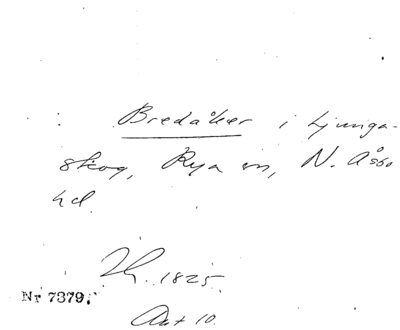 Bredåker i Ljunga-
skog, Rya sn, N. Åsbo
hd.
1825.
Nr 7379.
Akt 10.